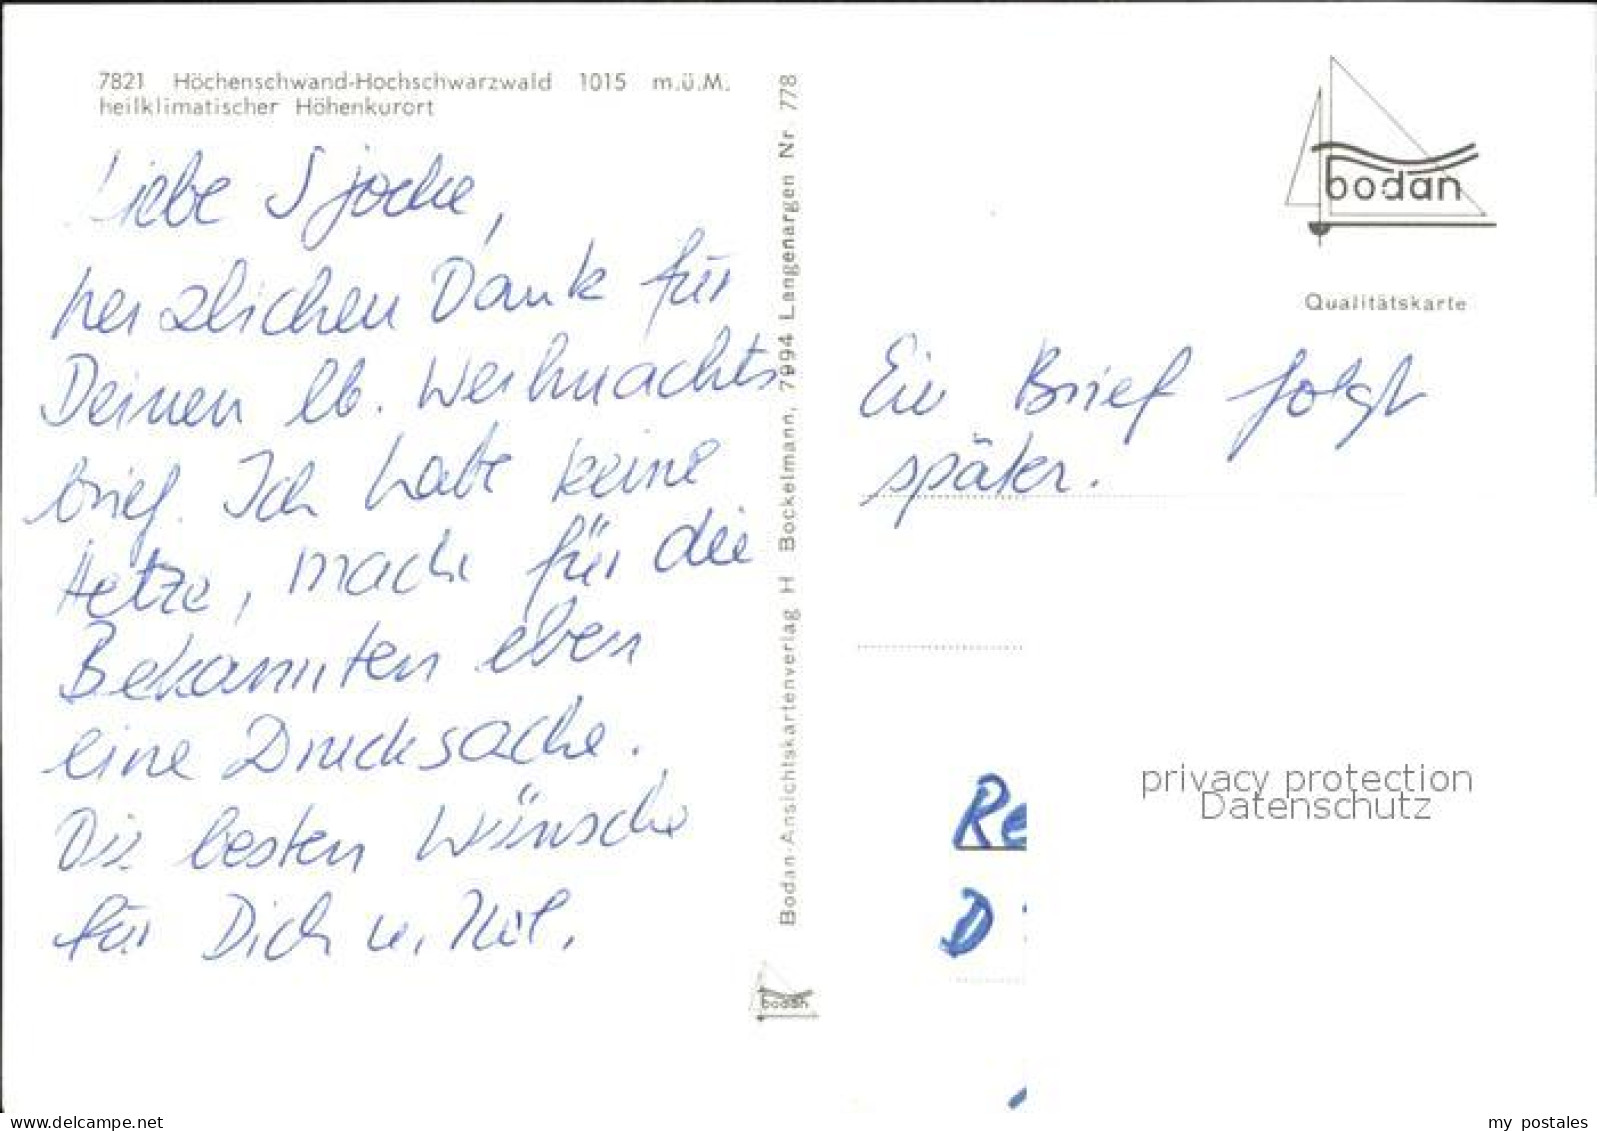 7821 Höchenschwand-Hochschwarzwald 1015 m.ü.M.
heilklimatischer Höhenkurort
Liebe Sjocke,
herzlichen Dank für
Deinen lb. Weihnachts
brief. Ich habe keine
Hetze, mache für die
Bekannten eben
eine Drucksache.
Die besten Wünsche
für Dich u.
Bodan-Ansichtskartenverlag H Bockelmann, 7994 Langenargen Nr. 778
bodan
bodan
Qualitätskarte
Ein Brief folgt
später.
Re
D
privacy protection
Datenschutz
www.delcampe.net
my_postales